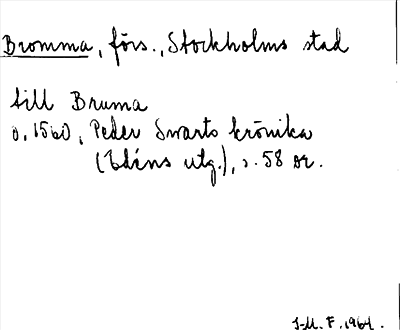 Bromma, förs., Stockholms stad
till Bruma
o. 1560, Peder Swarts krönika
(Edéns utg.), s. 58 or.
J-M. F. 1964.